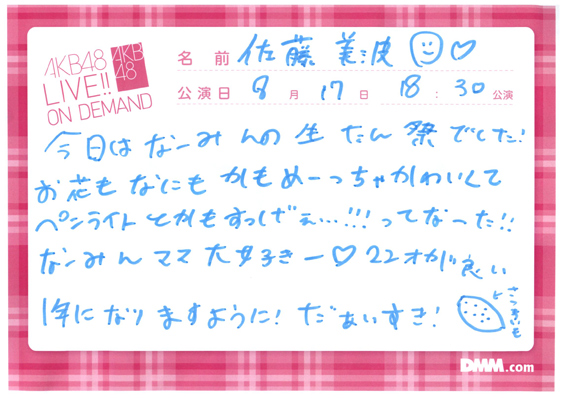 AKB48
LIVE!!
ON DEMAND
AKB
48
名前 佐藤 美波
公演日 8月17日 18:30公演
今日はなーみんの生たん祭でした!
お花もなにもかもめーっちゃかわいくて
ペンライトとかもすっげぇ…!!!ってなった!!
なーみんママ大好きー♡22才が良い
1年になりますように!だぁいすき!
さつまいも
DMM.com